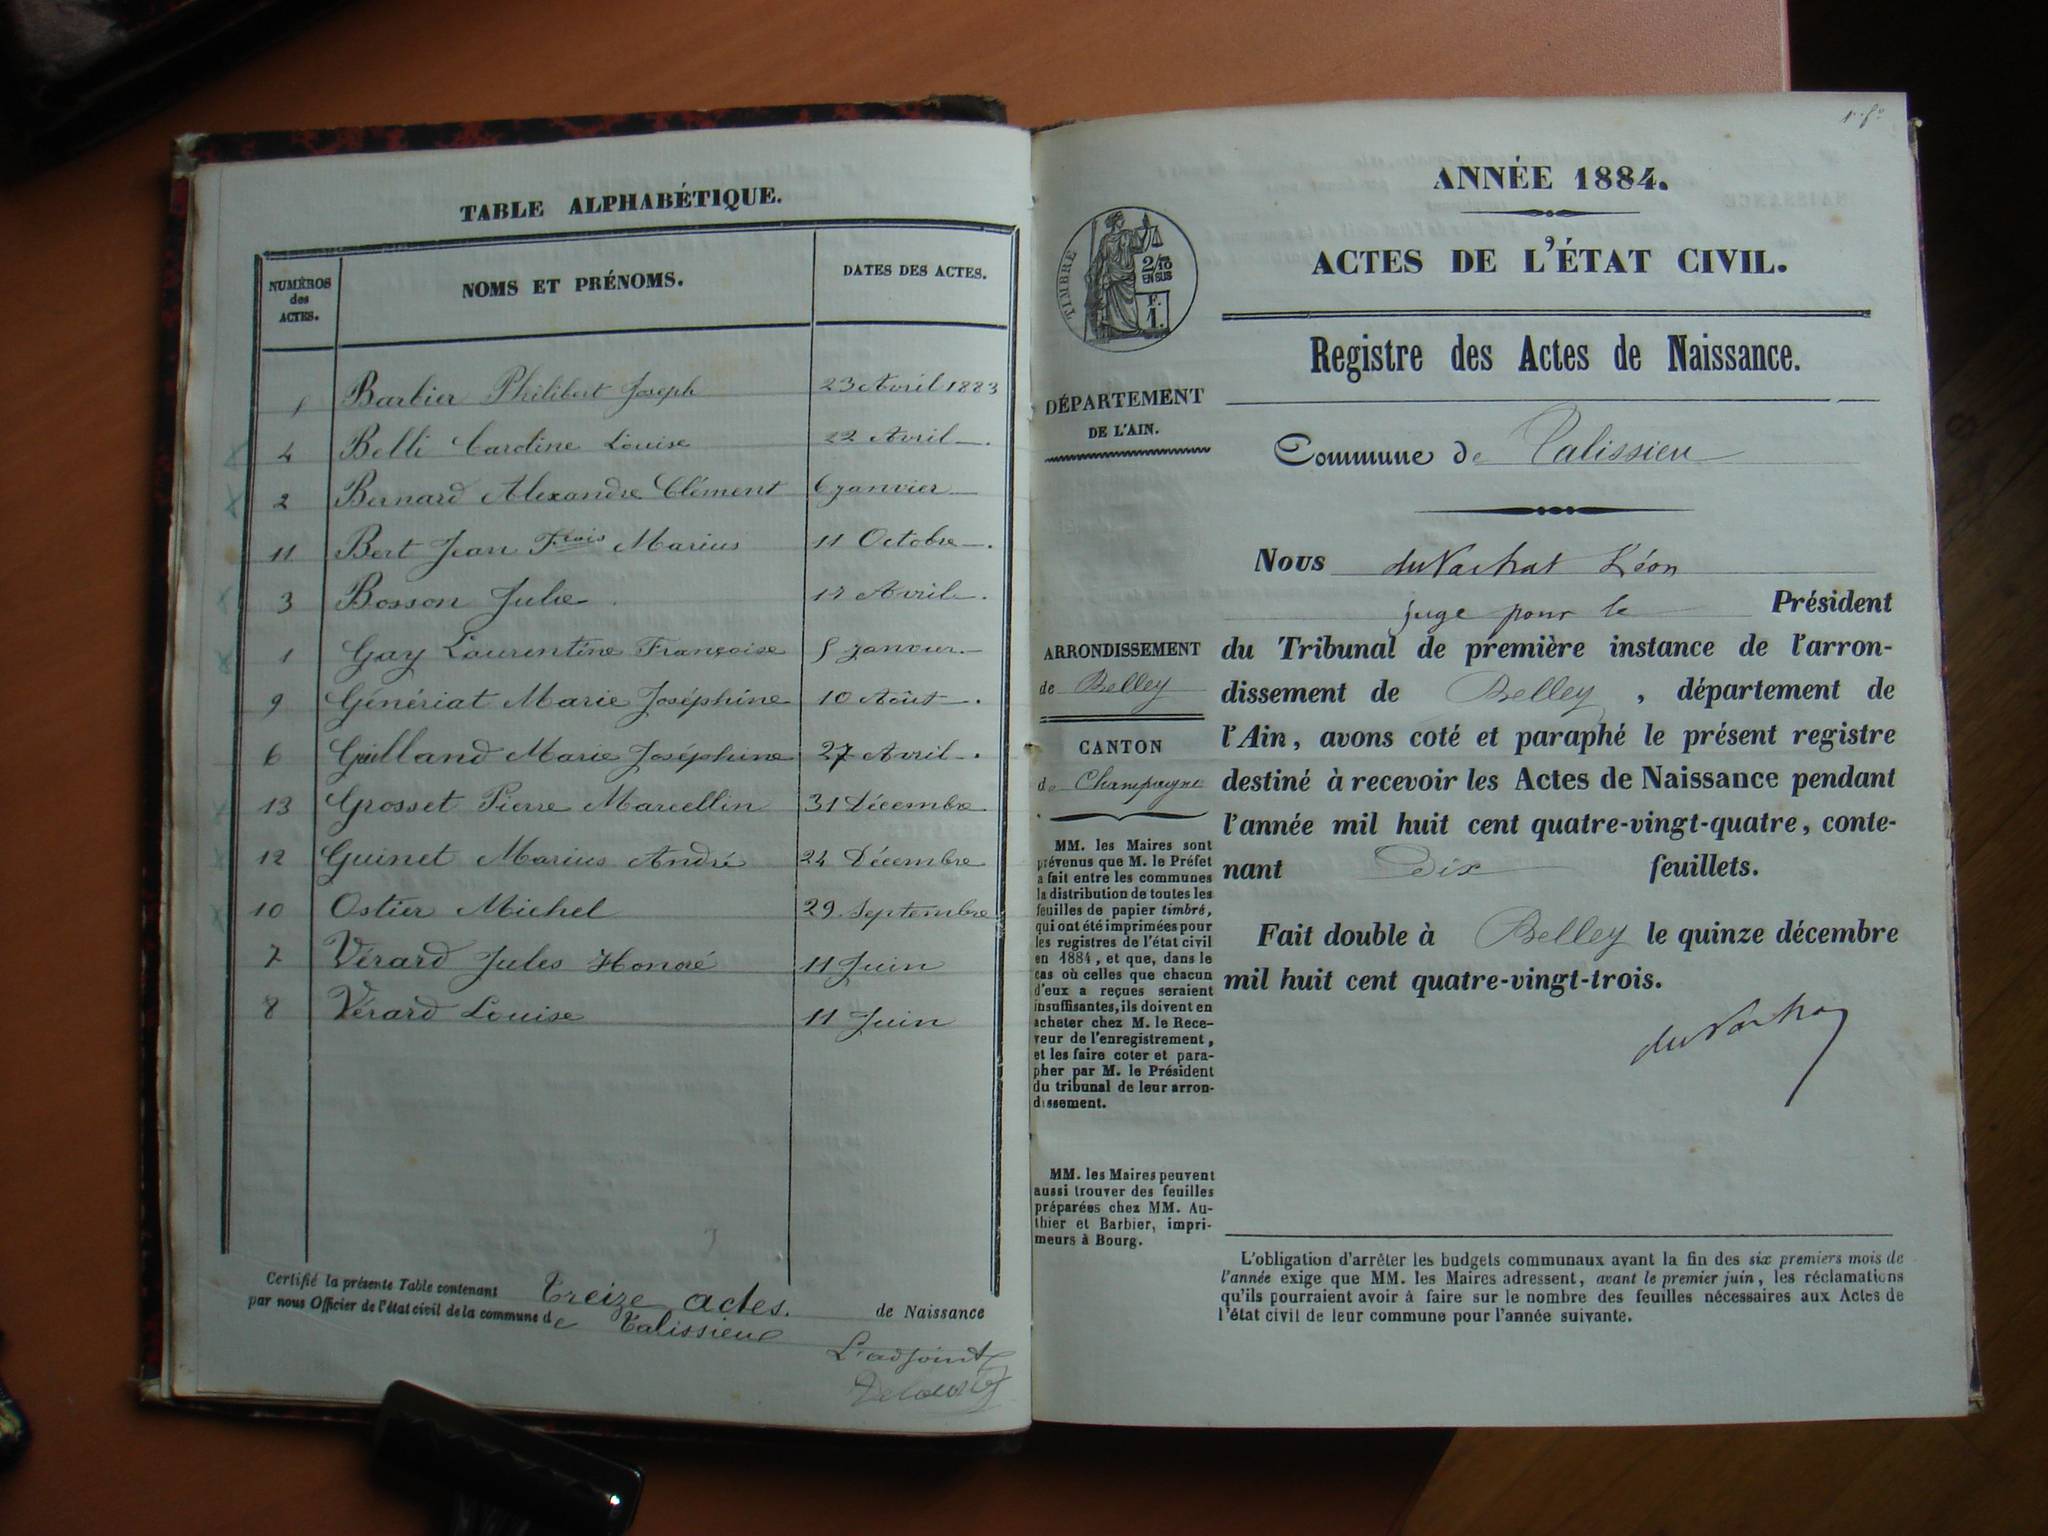 TABLE ALPHABÉTIQUE.
NUMÉROS des ACTES. NOMS ET PRÉNOMS. DATES DES ACTES.
Barbier Philibert Joseph 23 Avril 1883
4 Belli Caroline Louise 22 Avril
2 Bernard Alexandre Clément 6 janvier
11 Bert Jean Fçois Marius 11 Octobre
3 Bosson Julie Avril
1 Gay Laurentine Françoise 5 janvier
9 Génériat Marie Joséphine 10 Août
6 Guilland Marie Joséphine 27 Avril
13 Grosset Pierre Marcellin 31 Décembre
12 Guinet Marius André 24 Décembre
10 Ostier Michel 29 Septembre
7 Vérard Jules Honoré 11 Juin
8 Vérard Louise 11 Juin
Certifié la présente Table contenant Treize actes. de Naissance
par nous Officier de l'état civil de la commune de Talissieu
L'adjoint
1er fo
ANNÉE 1884.
ACTES DE L'ÉTAT CIVIL.
TIMBRE
2/10
EN SUS
F.
1.
Registre des Actes de Naissance.
DÉPARTEMENT
DE L'AIN.
Commune de Talissieu
Nous du Vachat Léon
juge pour le Président
du Tribunal de première instance de l'arron-
dissement de Belley, département de
l'Ain, avons coté et paraphé le présent registre
destiné à recevoir les Actes de Naissance pendant
l'année mil huit cent quatre-vingt-quatre, conte-
nant Dix feuillets.
Fait double à Belley le quinze décembre
mil huit cent quatre-vingt-trois.
du Vachat
ARRONDISSEMENT
de Belley
CANTON
de Champagne
MM. les Maires sont
prévenus que M. le Préfet
a fait entre les communes
la distribution de toutes les
feuilles de papier timbré,
qui ont été imprimées pour
les registres de l'état civil
en 1884, et que, dans le
cas où celles que chacun
d'eux a reçues seraient
insuffisantes, ils doivent en
acheter chez M. le Rece-
veur de l'enregistrement,
et les faire coter et para-
pher par M. le Président
du tribunal de leur arron-
dissement.
MM. les Maires peuvent
aussi trouver des feuilles
préparées chez MM. Au-
thier et Barbier, impri-
meurs à Bourg.
L'obligation d'arrêter les budgets communaux avant la fin des six premiers mois de
l'année exige que MM. les Maires adressent, avant le premier juin, les réclamations
qu'ils pourraient avoir à faire sur le nombre des feuilles nécessaires aux Actes de
l'état civil de leur commune pour l'année suivante.